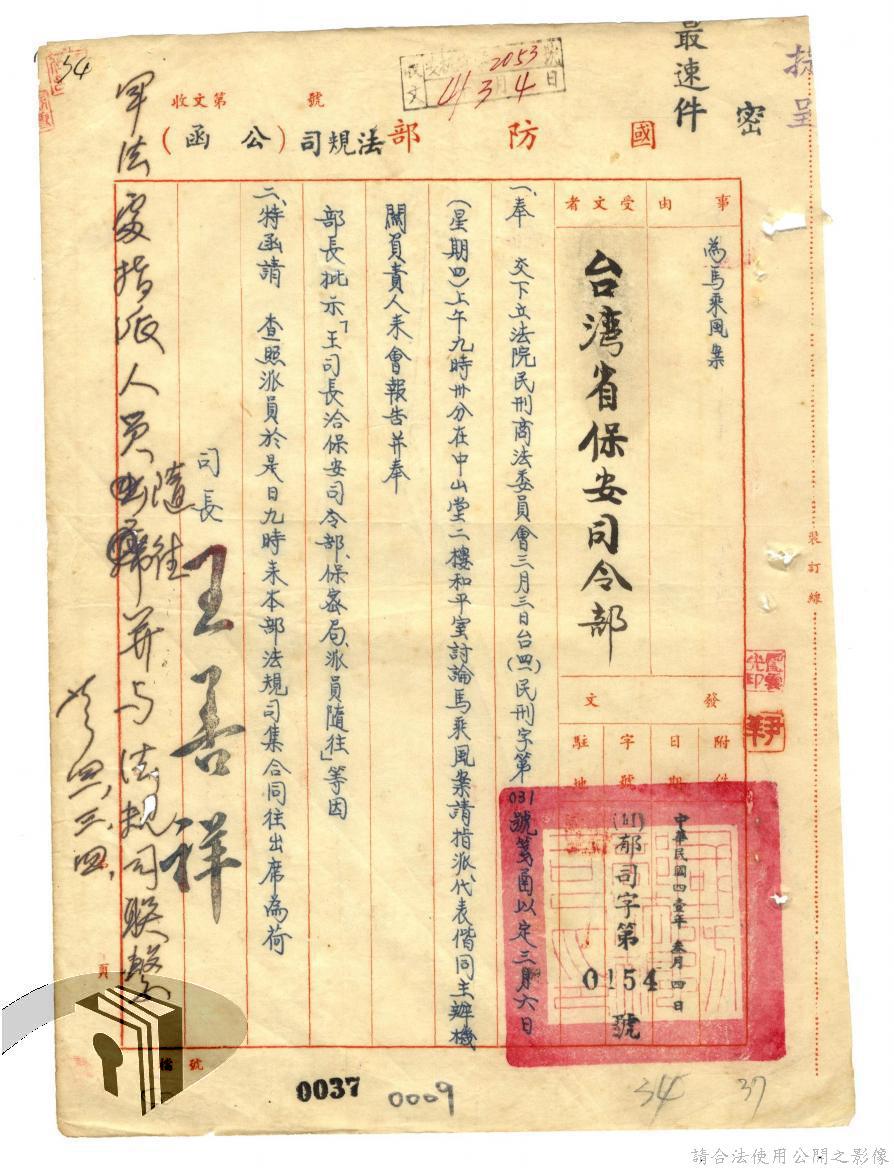 抄呈
密
最速件
國防部法規司（公函）
收文第　　號
收文 字第2053號
41 3月4日
事由
為馬乘風案
受文者
台灣省保安司令部
發文
附件
日期
中華民國四壹年叁月四日
字號
(41)郁司字第0154號
駐地
一、奉　交下立法院民刑商法委員會三月三日台(四一)民刑字第031號箋函以定三月六日
(星期四)上午九時卅分在中山堂二樓和平室討論馬乘風案請指派代表偕同主辦機
關負責人來會報告并奉
部長批示「王司長洽保安司令部、保密局、派員隨往」等因
二、特函請　查照派員於是日九時來本部法規司集合同往出席為荷
司長
王善祥
軍法處指派人員隨往并与法規司联繫
四、三、四、
裝訂線
頁
檔號
0037
0009
54
37
34
請合法使用公開之影像